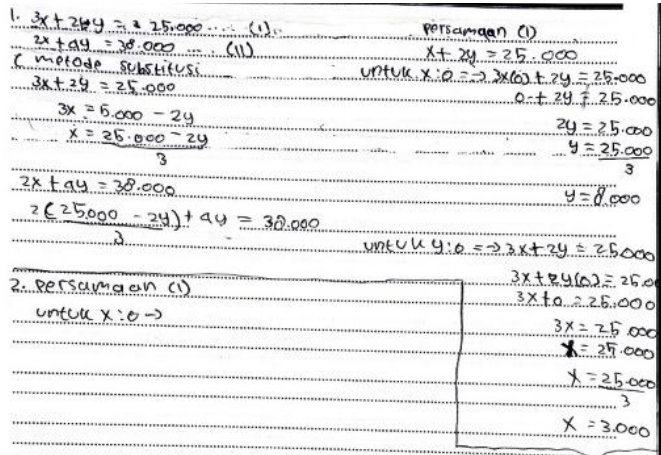 1. 3x + 2y = 25.000 .... (1).
2x + 4y = 38.000 ... (11)
( metode substitusi
3x + 2y = 25.000
3x = 5.000 - 2y
x = 25.000 - 2y
3
2x + 4y = 38.000
2 ( 25.000 - 2y ) + 4y = 38.000
3
2. persamaan (1)
untuk x : 0 ->
persamaan (1)
x + 2y = 25.000
untuk x : 0 => 3x(0) + 2y = 25.000
0 + 2y = 25.000
2y = 25.000
y = 25.000
3
y = 8.000
untuk y : 0 => 3x + 2y = 25000
3x + 2y(0) = 25.0
3x + 0 = 25.000
3x = 25.000
x = 25.000
x = 25.000
3
x = 3.000